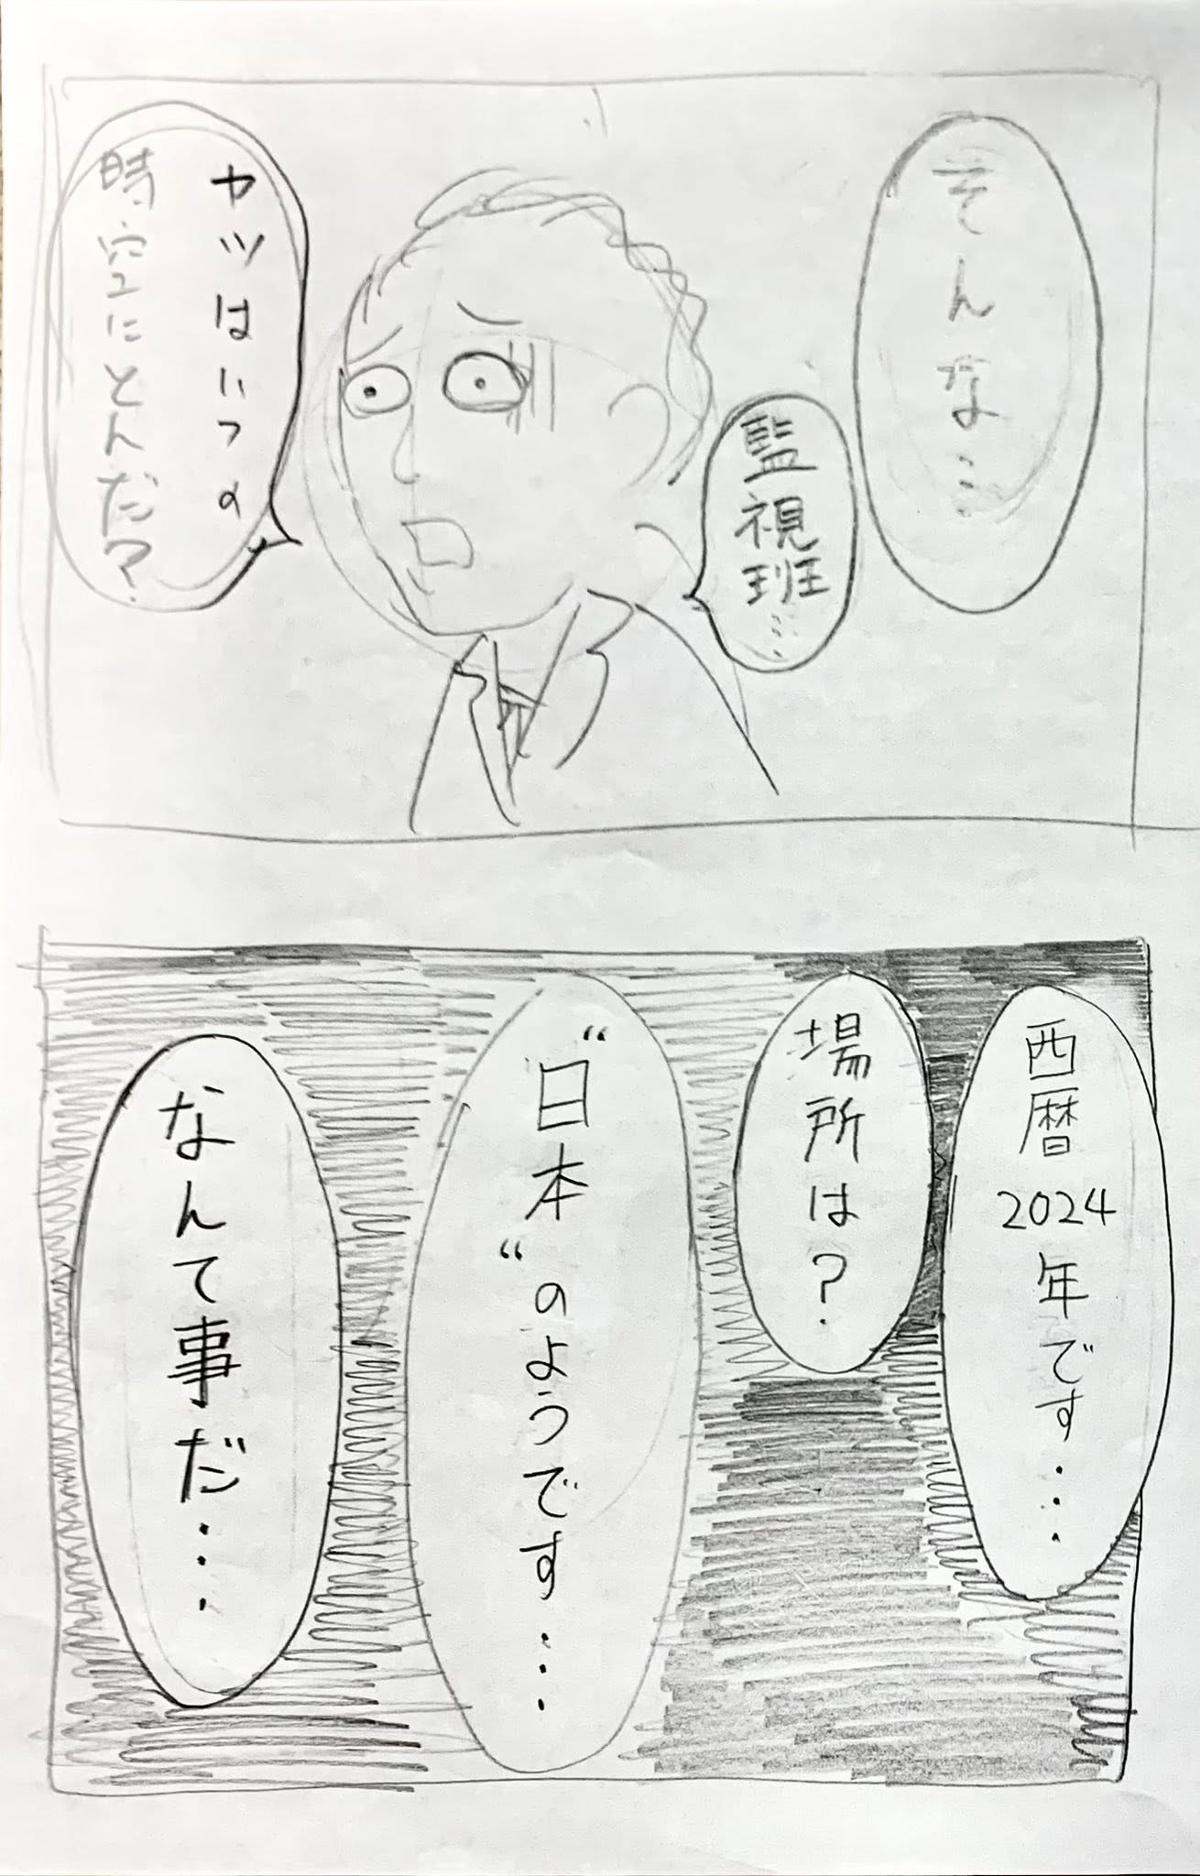 そんな…
監視班…
ヤツはいつの
時空にとんだ?
西暦
2024
年です…
場所は?
“日本“のようです…
なんて事だ…